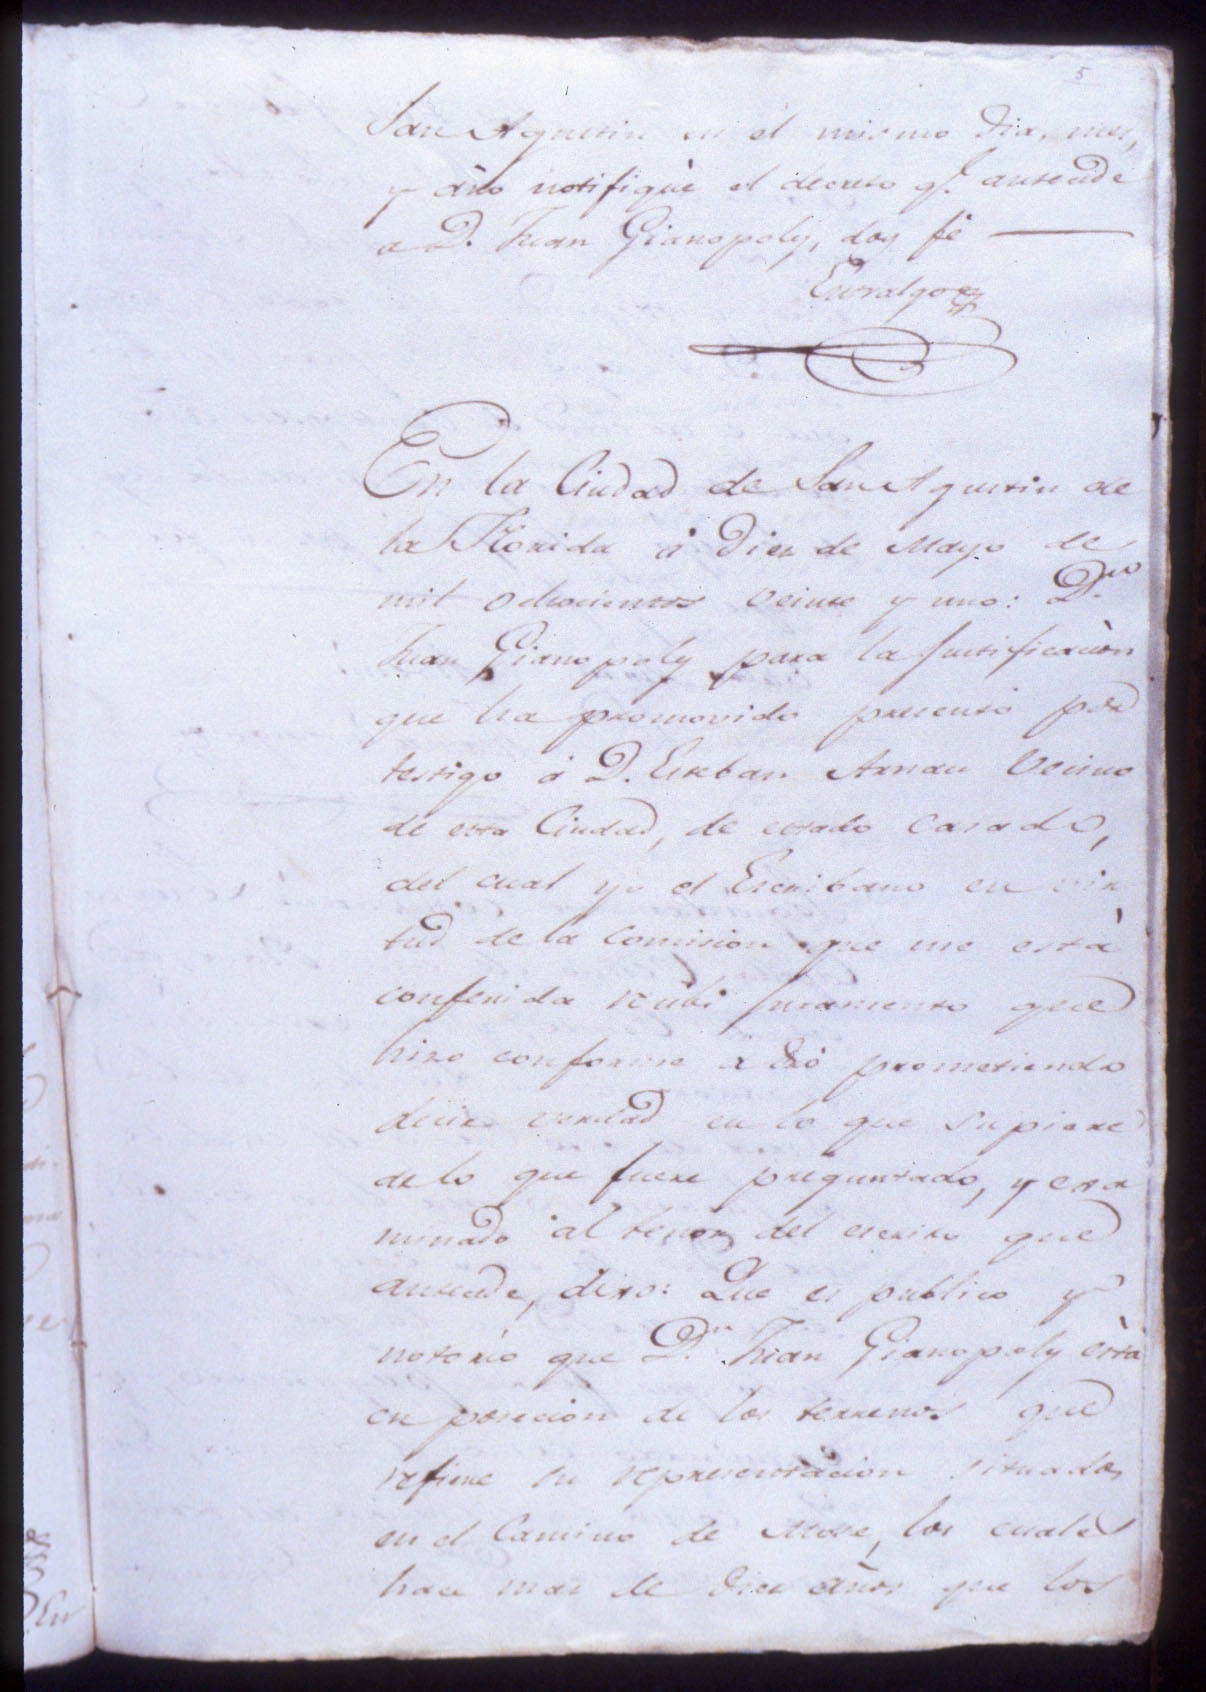 5
San Agustin en el mismo dia, mes,
y año notifiqué el decreto q.e antecede
a D. Juan Gianopoly, doy fé
Entralgo
En la Ciudad de San Agustin de
la Florida á diez de Mayo de
mil ochocientos veinte y uno: D.n
Juan Gianopoly para la justificacion
que ha promovido presentó por
testigo á D. Esteban Arnau vecino
de esta Ciudad, de estado casado,
del cual yo el Escribano en vir
tud de la comision que me está
conferida recibi juramento que
hizo conforme a dro prometiendo
decir verdad en lo que supiere
de lo que fuere preguntado, y exa
minado al tenor del escrito que
antecede, dixo: Que es publico y
notorio que D.n Juan Gianopoly está
en posecion de los terrenos que
refiere su representacion situados
en el Camino de Mose, los cuales
hace mas de diez años que los